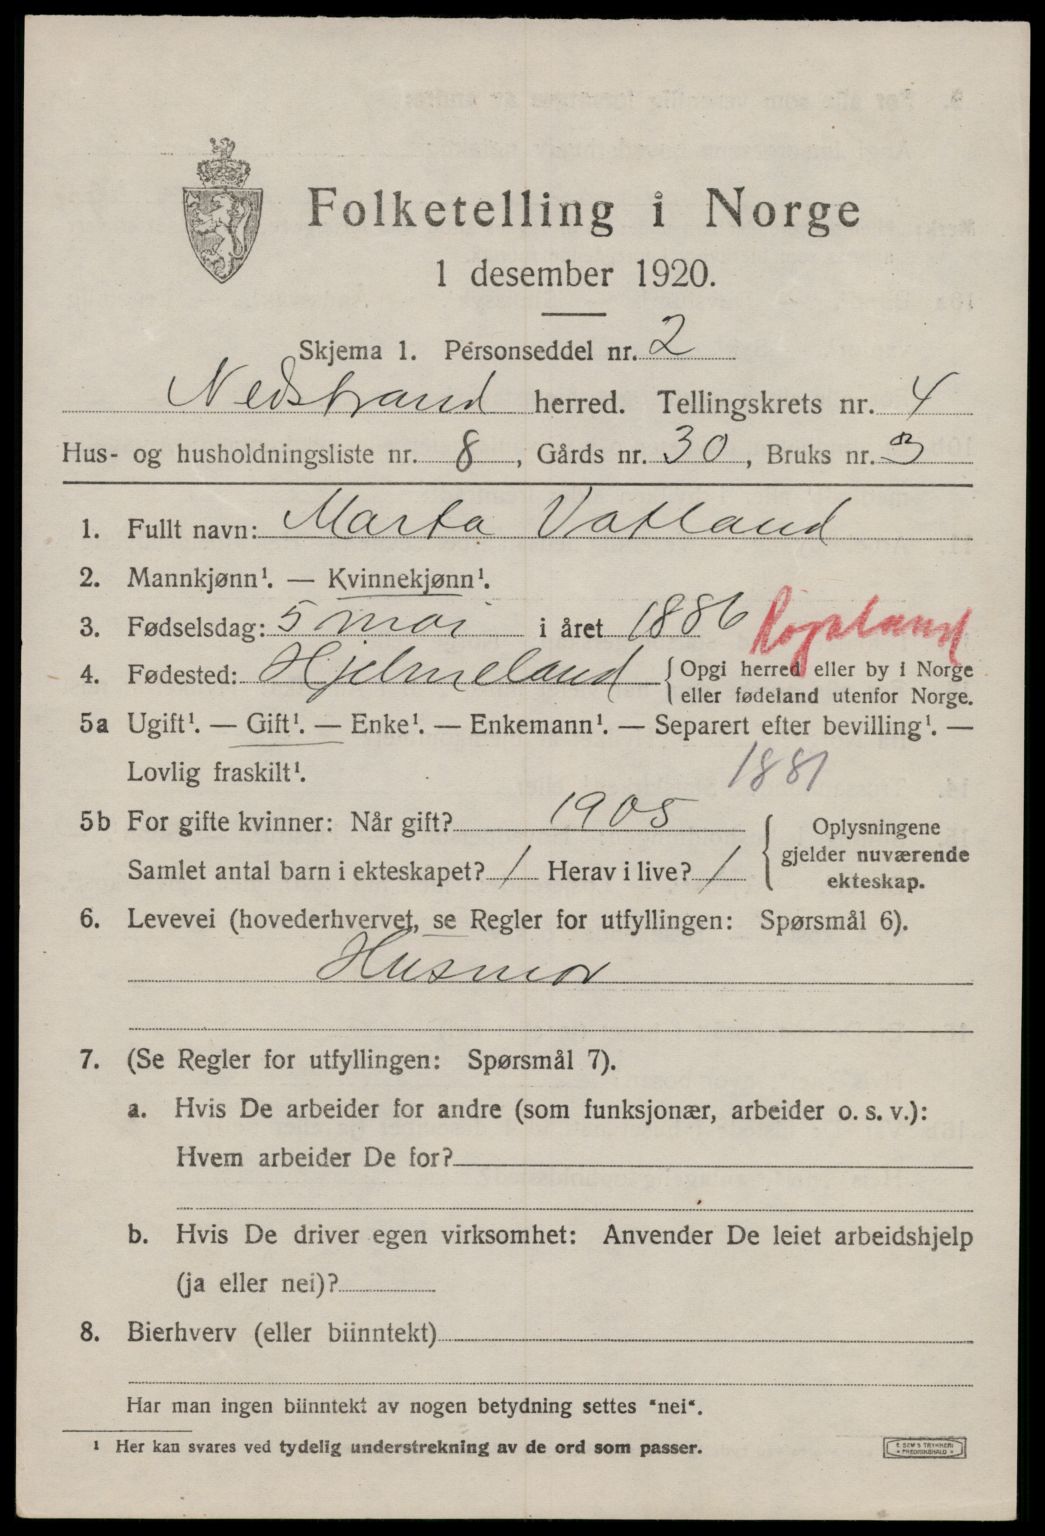 Folketelling i Norge
1 desember 1920.
Skjema 1. Personseddel nr. 2
Nedstrand herred. Tellingskrets nr. 4
Hus- og husholdningsliste nr. 8, Gårds nr. 30, Bruks nr. 3
1. Fullt navn: Marta Vatland
2. Mannkjønn¹. — Kvinnekjønn¹.
3. Fødselsdag: 5 mai i året 1886 Rogaland
4. Fødested: Hjelmeland { Opgi herred eller by i Norge
eller fødeland utenfor Norge.
5a Ugift¹. — Gift¹. — Enke¹. — Enkemann¹. — Separert efter bevilling¹. —
Lovlig fraskilt¹. 1881
5b For gifte kvinner: Når gift? 1905
Samlet antal barn i ekteskapet? 1 Herav i live? 1
{ Oplysningene
gjelder nuværende
ekteskap.
6. Levevei (hovederhvervet, se Regler for utfyllingen: Spørsmål 6).
Husmor
7. (Se Regler for utfyllingen: Spørsmål 7).
a. Hvis De arbeider for andre (som funksjonær, arbeider o. s. v.):
Hvem arbeider De for?
b. Hvis De driver egen virksomhet: Anvender De leiet arbeidshjelp
(ja eller nei)?
8. Bierhverv (eller biinntekt)
Har man ingen biinntekt av nogen betydning settes "nei".
¹ Her kan svares ved tydelig understrekning av de ord som passer.
E. SEM'S TRYKKERI
FREDRIKSHALD